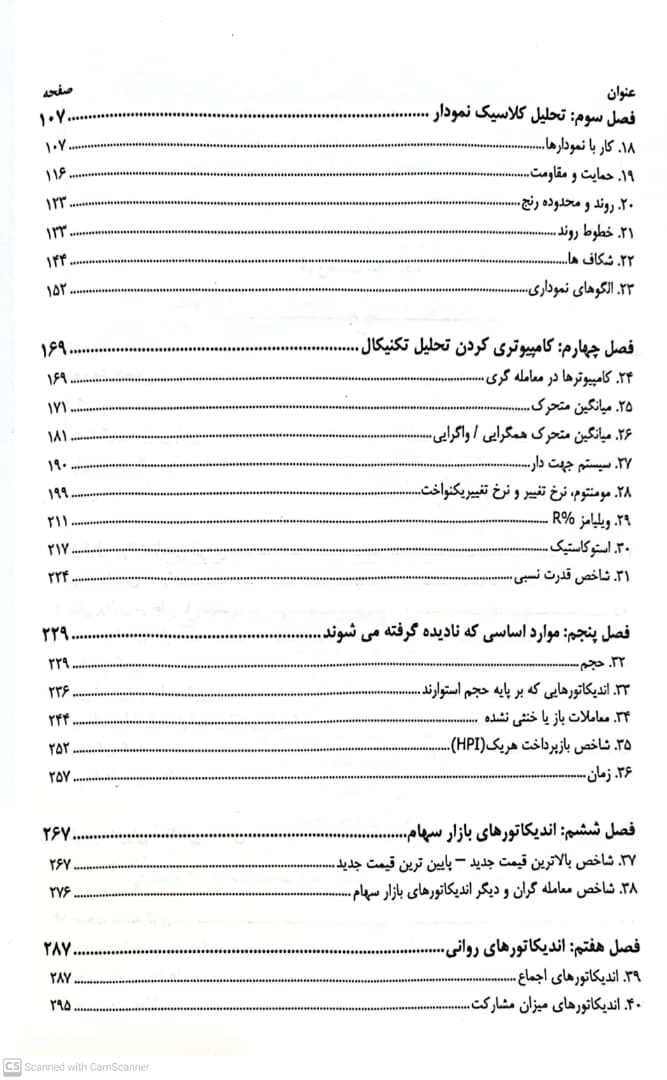 عنوان صفحه
فصل سوم: تحلیل کلاسیک نمودار ........ ۱۰۷
۱۸. کار با نمودارها ........ ۱۰۷
۱۹. حمایت و مقاومت ........ ۱۱۶
۲۰. روند و محدوده رنج ........ ۱۲۳
۲۱. خطوط روند ........ ۱۳۳
۲۲. شکاف ها ........ ۱۴۴
۲۳. الگوهای نموداری ........ ۱۵۲
فصل چهارم: کامپیوتری کردن تحلیل تکنیکال ........ ۱۶۹
۲۴. کامپیوترها در معامله گری ........ ۱۶۹
۲۵. میانگین متحرک ........ ۱۷۱
۲۶. میانگین متحرک همگرایی / واگرایی ........ ۱۸۱
۲۷. سیستم جهت دار ........ ۱۹۰
۲۸. مومنتوم، نرخ تغییر و نرخ تغییریکنواخت ........ ۱۹۹
۲۹. ویلیامز R% ........ ۲۱۱
۳۰. استوکاستیک ........ ۲۱۷
۳۱. شاخص قدرت نسبی ........ ۲۲۴
فصل پنجم: موارد اساسی که نادیده گرفته می شوند ........ ۲۲۹
۳۲. حجم ........ ۲۲۹
۳۳. اندیکاتورهایی که بر پایه حجم استوارند ........ ۲۳۶
۳۴. معاملات باز یا خنثی نشده ........ ۲۴۴
۳۵. شاخص بازپرداخت هریک(HPI) ........ ۲۵۲
۳۶. زمان ........ ۲۵۷
فصل ششم: اندیکاتورهای بازار سهام ........ ۲۶۷
۳۷. شاخص بالاترین قیمت جدید – پایین ترین قیمت جدید ........ ۲۶۷
۳۸. شاخص معامله گران و دیگر اندیکاتورهای بازار سهام ........ ۲۷۶
فصل هفتم: اندیکاتورهای روانی ........ ۲۸۷
۳۹. اندیکاتورهای اجماع ........ ۲۸۷
۴۰. اندیکاتورهای میزان مشارکت ........ ۲۹۵
CS Scanned with CamScanner